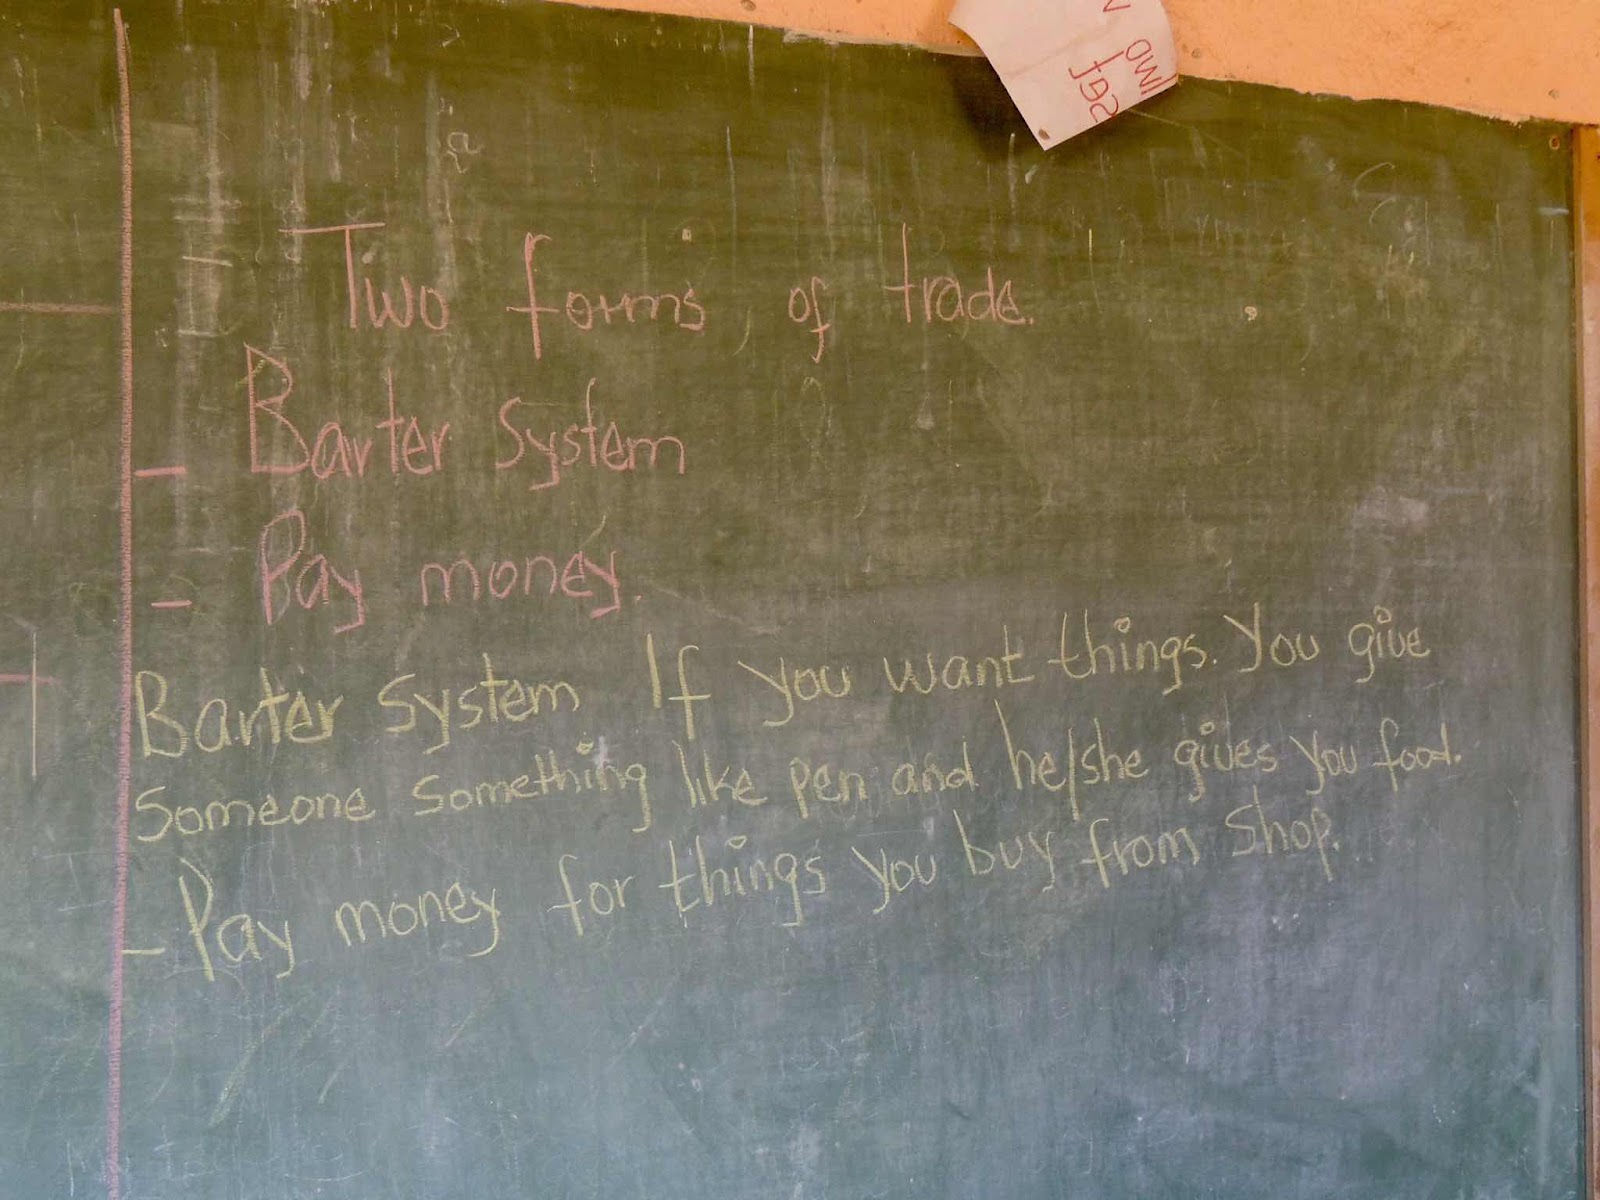 Two forms of trade.
- Barter System
- Pay money.
Barter System If you want things. You give
Someone Something like pen and he/she gives you food.
- Pay money for things you buy from Shop.